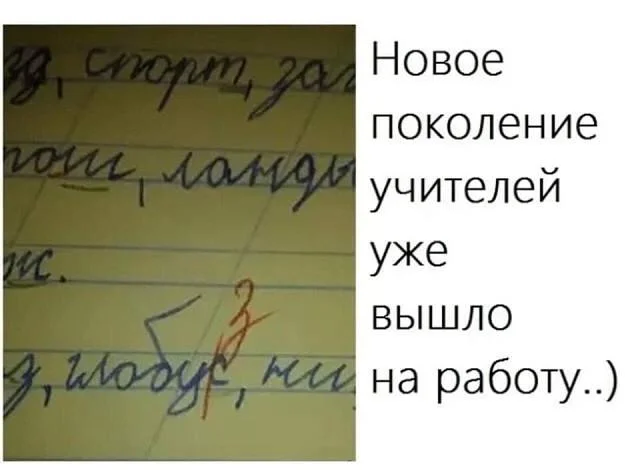 спорт,
ланды
ж.
з
глобус, ни
Новое
поколение
учителей
уже
вышло
на работу..)